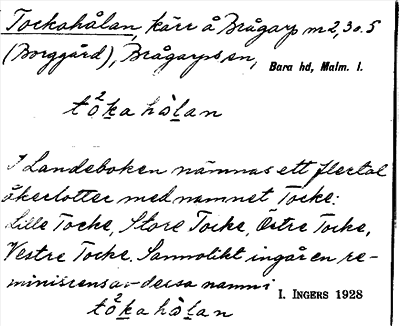 Tockahålan, kärr å Brågarp m 2,30.5
(Borggård), Brågarps sn,
Bara hd, Malm. l.
tò²ka hå̀lan
I Landeboken nämnas ett flertal
åkerlotter med namnet Tocke:
Lille Tocke, Store Tocke, Östre Tocke,
Vestre Tocke. Sannolikt ingår en re-
miniscens av dessa namn i
I. INGERS 1928
tò²ka hå̀lan